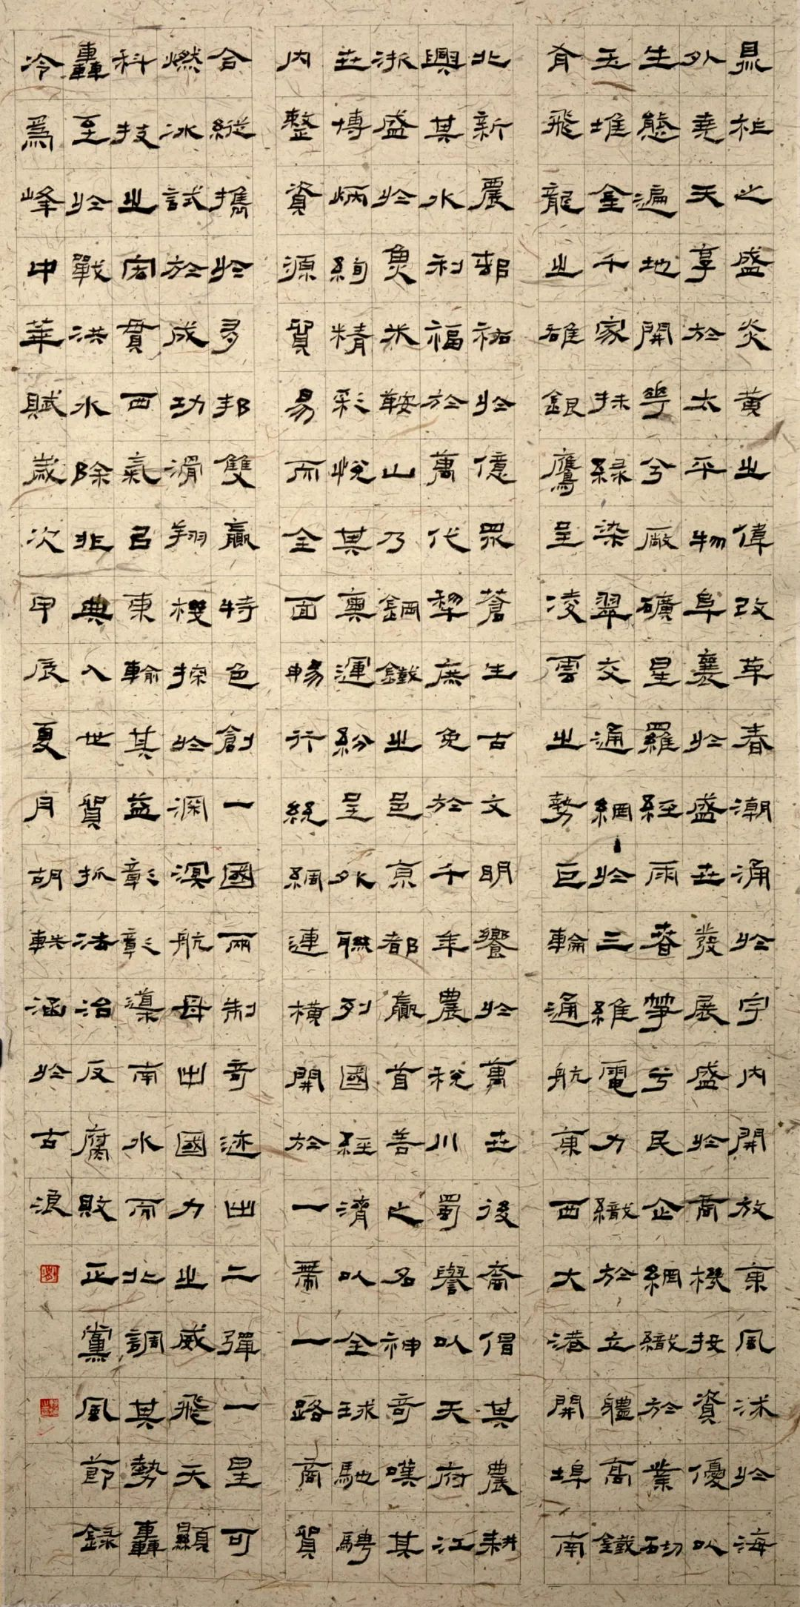 之盛炎黄之偉改革春潮涌於宇内開放東風沐於海
外堯天享於太平物阜襄於盛世發展盛於商機投資優以
生態遍地開花兮廠礦星羅經雨春笋兮民企網織於業砌
玉堆金千家抹緑染翠交通網於三維電力織於立體高鐵
有飛龍之雄銀鷹呈凌雲之勢巨輪通航東西大港開埠南
北新農邨祐於億眾蒼生古文明饗於萬世後裔倡其農耕
興其水利福於萬代黎庶免於千年農税川蜀譽以天府江
浙盛於魚米鞍山乃鋼鐵之邑京都贏首善之名神奇嘆其
世博炳絢精彩悦其奥運紛呈外聯列國經濟以全球馳騁
内整資源貿易而全面暢行統綱連横開於一帶一路商貿
合縱攜於多邦雙贏特色創一國兩制奇迹出二彈一星可
燃冰試於成功滑翔機探於深溟航母出國力之威飛天顯
科技之宏貫西氣召東輸其益彰彰導南水而北調其勢轟
轟至於戰洪水除非典入世貿抓法治反腐敗正黨風節録
冷爲峰中華賦歲次甲辰夏月胡軼涵於古浪